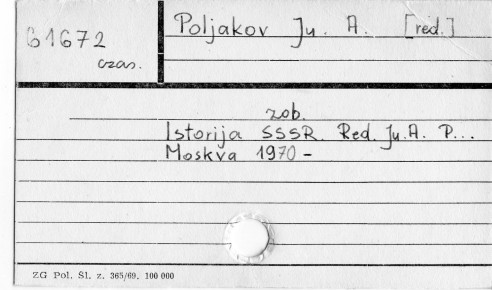 61672
czas.
Poljakov Ju. A. [red.]
zob.
Istorija SSSR. Red. Ju. A. P...
Moskva 1970 -
ZG Pol. Śl. z. 365/69. 100 000